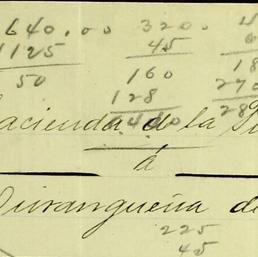 640.00 320
1125 45
50 160 18
128 270
acienda de la
á
Durangueña de
225
45